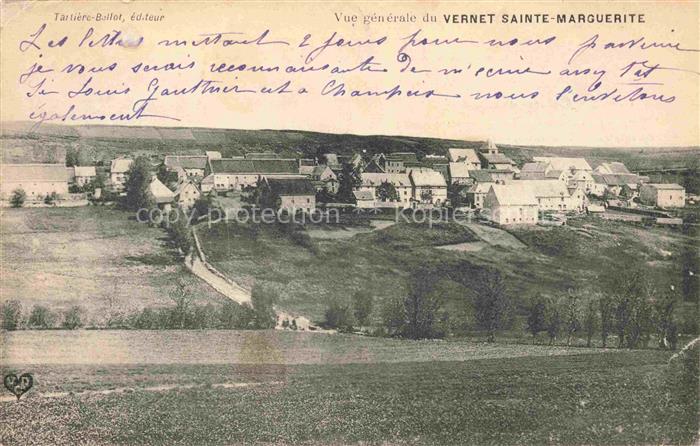 Tartière-Ballot, éditeur
Vue générale du VERNET SAINTE-MARGUERITE
Les lettres mettant 2 jours pour nous parvenir
je vous serais reconnaissante de m'écrire assez tôt
Si Louis Gauthier est à Champeix nous l'invitons
également
© copyright protection Kopierschutz